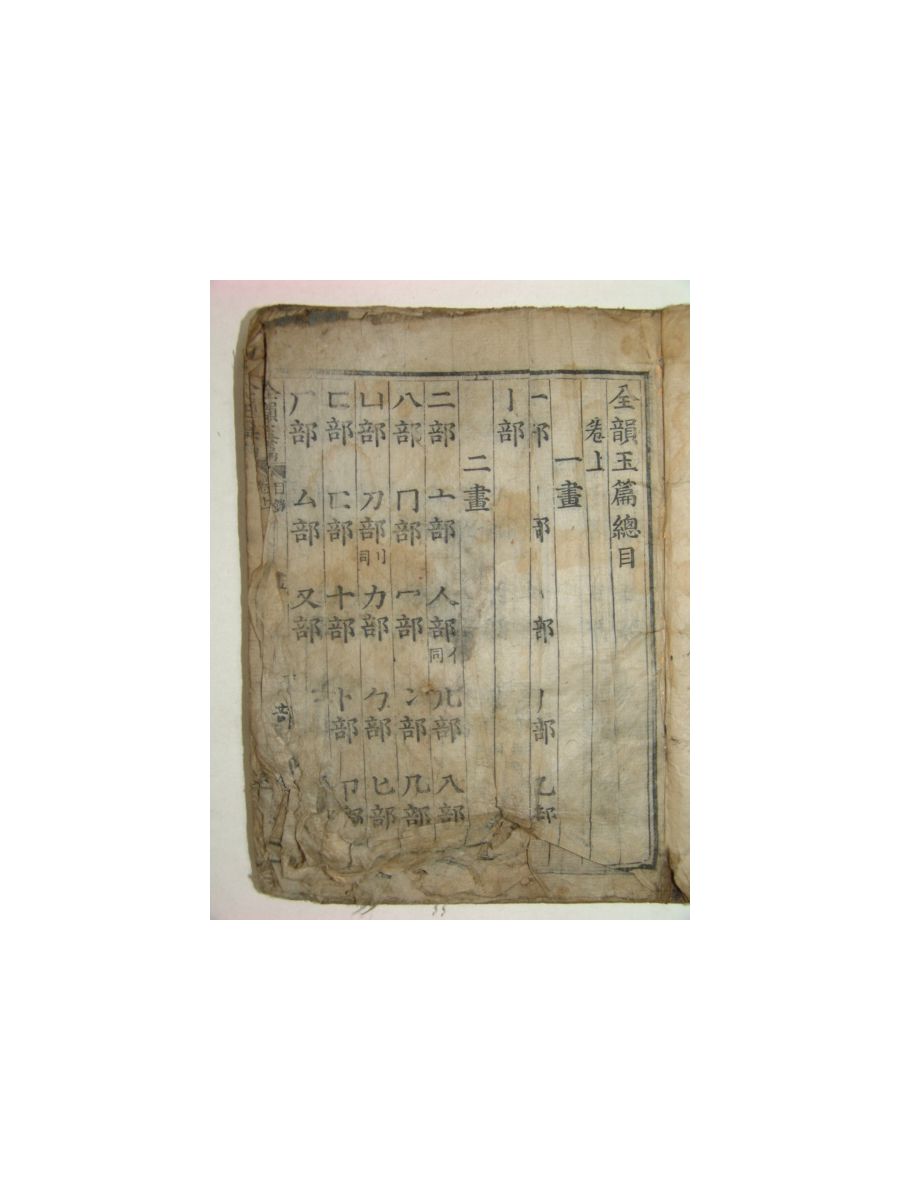 全韻玉篇總目
卷上
一畫
一部 丨部 丶部 丿部 乙部
亅部
二畫
二部 亠部 人部亻同 儿部 入部
八部 冂部 冖部 冫部 几部
凵部 刀部刂同 力部 勹部 匕部
匚部 匸部 十部 卜部 卩部
厂部 厶部 又部
全韻玉篇 目錄